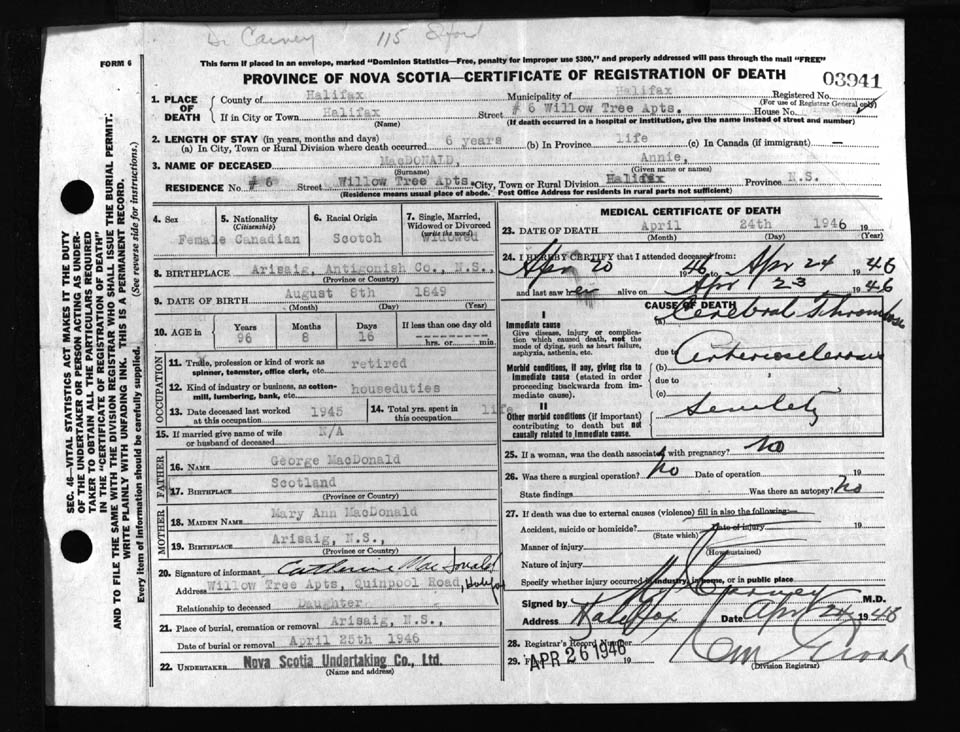 Dr Carney 115
This form if placed in an envelope, marked "Dominion Statistics—Free, penalty for improper use $300," and properly addressed will pass through the mail "FREE"
FORM 6
PROVINCE OF NOVA SCOTIA—CERTIFICATE OF REGISTRATION OF DEATH 03941
SEC. 46—VITAL STATISTICS ACT MAKES IT THE DUTY
OF THE UNDERTAKER OR PERSON ACTING AS UNDER-
TAKER TO OBTAIN ALL THE PARTICULARS REQUIRED
IN THE "CERTIFICATE OF REGISTRATION OF DEATH"
AND TO FILE THE SAME WITH THE DIVISION REGISTRAR WHO SHALL ISSUE THE BURIAL PERMIT.
WRITE PLAINLY WITH UNFADING INK. THIS IS A PERMANENT RECORD.
Every item of information should be carefully supplied. (See reverse side for instructions.)
1. PLACE OF DEATH County of Halifax Municipality of Halifax Registered No.
(For use of Registrar General only)
If in City or Town Halifax Street # 6 Willow Tree Apts. House No.
(Name) (If death occurred in a hospital or institution, give the name instead of street and number)
2. LENGTH OF STAY (in years, months and days)
(a) In City, Town or Rural Division where death occurred 6 years (b) In Province life (c) In Canada (if immigrant) —
3. NAME OF DECEASED MacDONALD, Annie,
(Surname) (Given name or names)
RESIDENCE No. # 6 Street Willow Tree Apts. City, Town or Rural Division Halifax Province N.S.
(Residence means usual place of abode. Post Office Address for residents in rural parts not sufficient)
4. Sex 5. Nationality (Citizenship) 6. Racial Origin 7. Single, Married, Widowed or Divorced (write the word)
Female Canadian Scotch Widowed
8. BIRTHPLACE Arisaig, Antigonish Co., N.S.,
(Province or Country)
9. DATE OF BIRTH August 8th 1849
(Month) (Day) (Year)
10. AGE in Years Months Days If less than one day old
96 8 16 hrs. or min.
OCCUPATION
11. Trade, profession or kind of work as spinner, teamster, office clerk, etc. retired
12. Kind of industry or business, as cotton-mill, lumbering, bank, etc. houseduties
13. Date deceased last worked at this occupation 1945 14. Total yrs. spent in this occupation life
15. If married give name of wife or husband of deceased N/A
FATHER
16. NAME George MacDonald
17. BIRTHPLACE Scotland
(Province or Country)
MOTHER
18. MAIDEN NAME Mary Ann MacDonald
19. BIRTHPLACE Arisaig, N.S.,
(Province or Country)
20. Signature of informant Catherine MacDonald
Address Willow Tree Apts, Quinpool Road, Halifax
Relationship to deceased Daughter
21. Place of burial, cremation or removal Arisaig, N.S.,
Date of burial or removal April 25th 1946
22. UNDERTAKER Nova Scotia Undertaking Co., Ltd.
(Name and address)
MEDICAL CERTIFICATE OF DEATH
23. DATE OF DEATH April 24th 1946 19
(Month) (Day) (Year)
24. I HEREBY CERTIFY that I attended deceased from:
Apr 20 1946 to Apr 24 1946
and last saw her alive on Apr 23 1946
CAUSE OF DEATH
I
Immediate cause
Give disease, injury or complication which caused death, not the mode of dying, such as heart failure, asphyxia, asthenia, etc.
(a) Cerebral Thrombosis
due to
Morbid conditions, if any, giving rise to immediate cause (stated in order proceeding backwards from immediate cause).
(b) Arteriosclerosis
due to
(c)
II
Other morbid conditions (if important) contributing to death but not causally related to immediate cause.
Senility
25. If a woman, was the death associated with pregnancy? No
26. Was there a surgical operation? No Date of operation 19
State findings Was there an autopsy? No
27. If death was due to external causes (violence) fill in also the following:
Accident, suicide or homicide? Date of injury 19
(State which)
Manner of injury
(How sustained)
Nature of injury
Specify whether injury occurred in industry, in home, or in public place
Signed by Carney M.D.
Address Halifax Date Apr 24 1946
28. Registrar's Record Number
29. APR 26 1946 19
(Division Registrar)